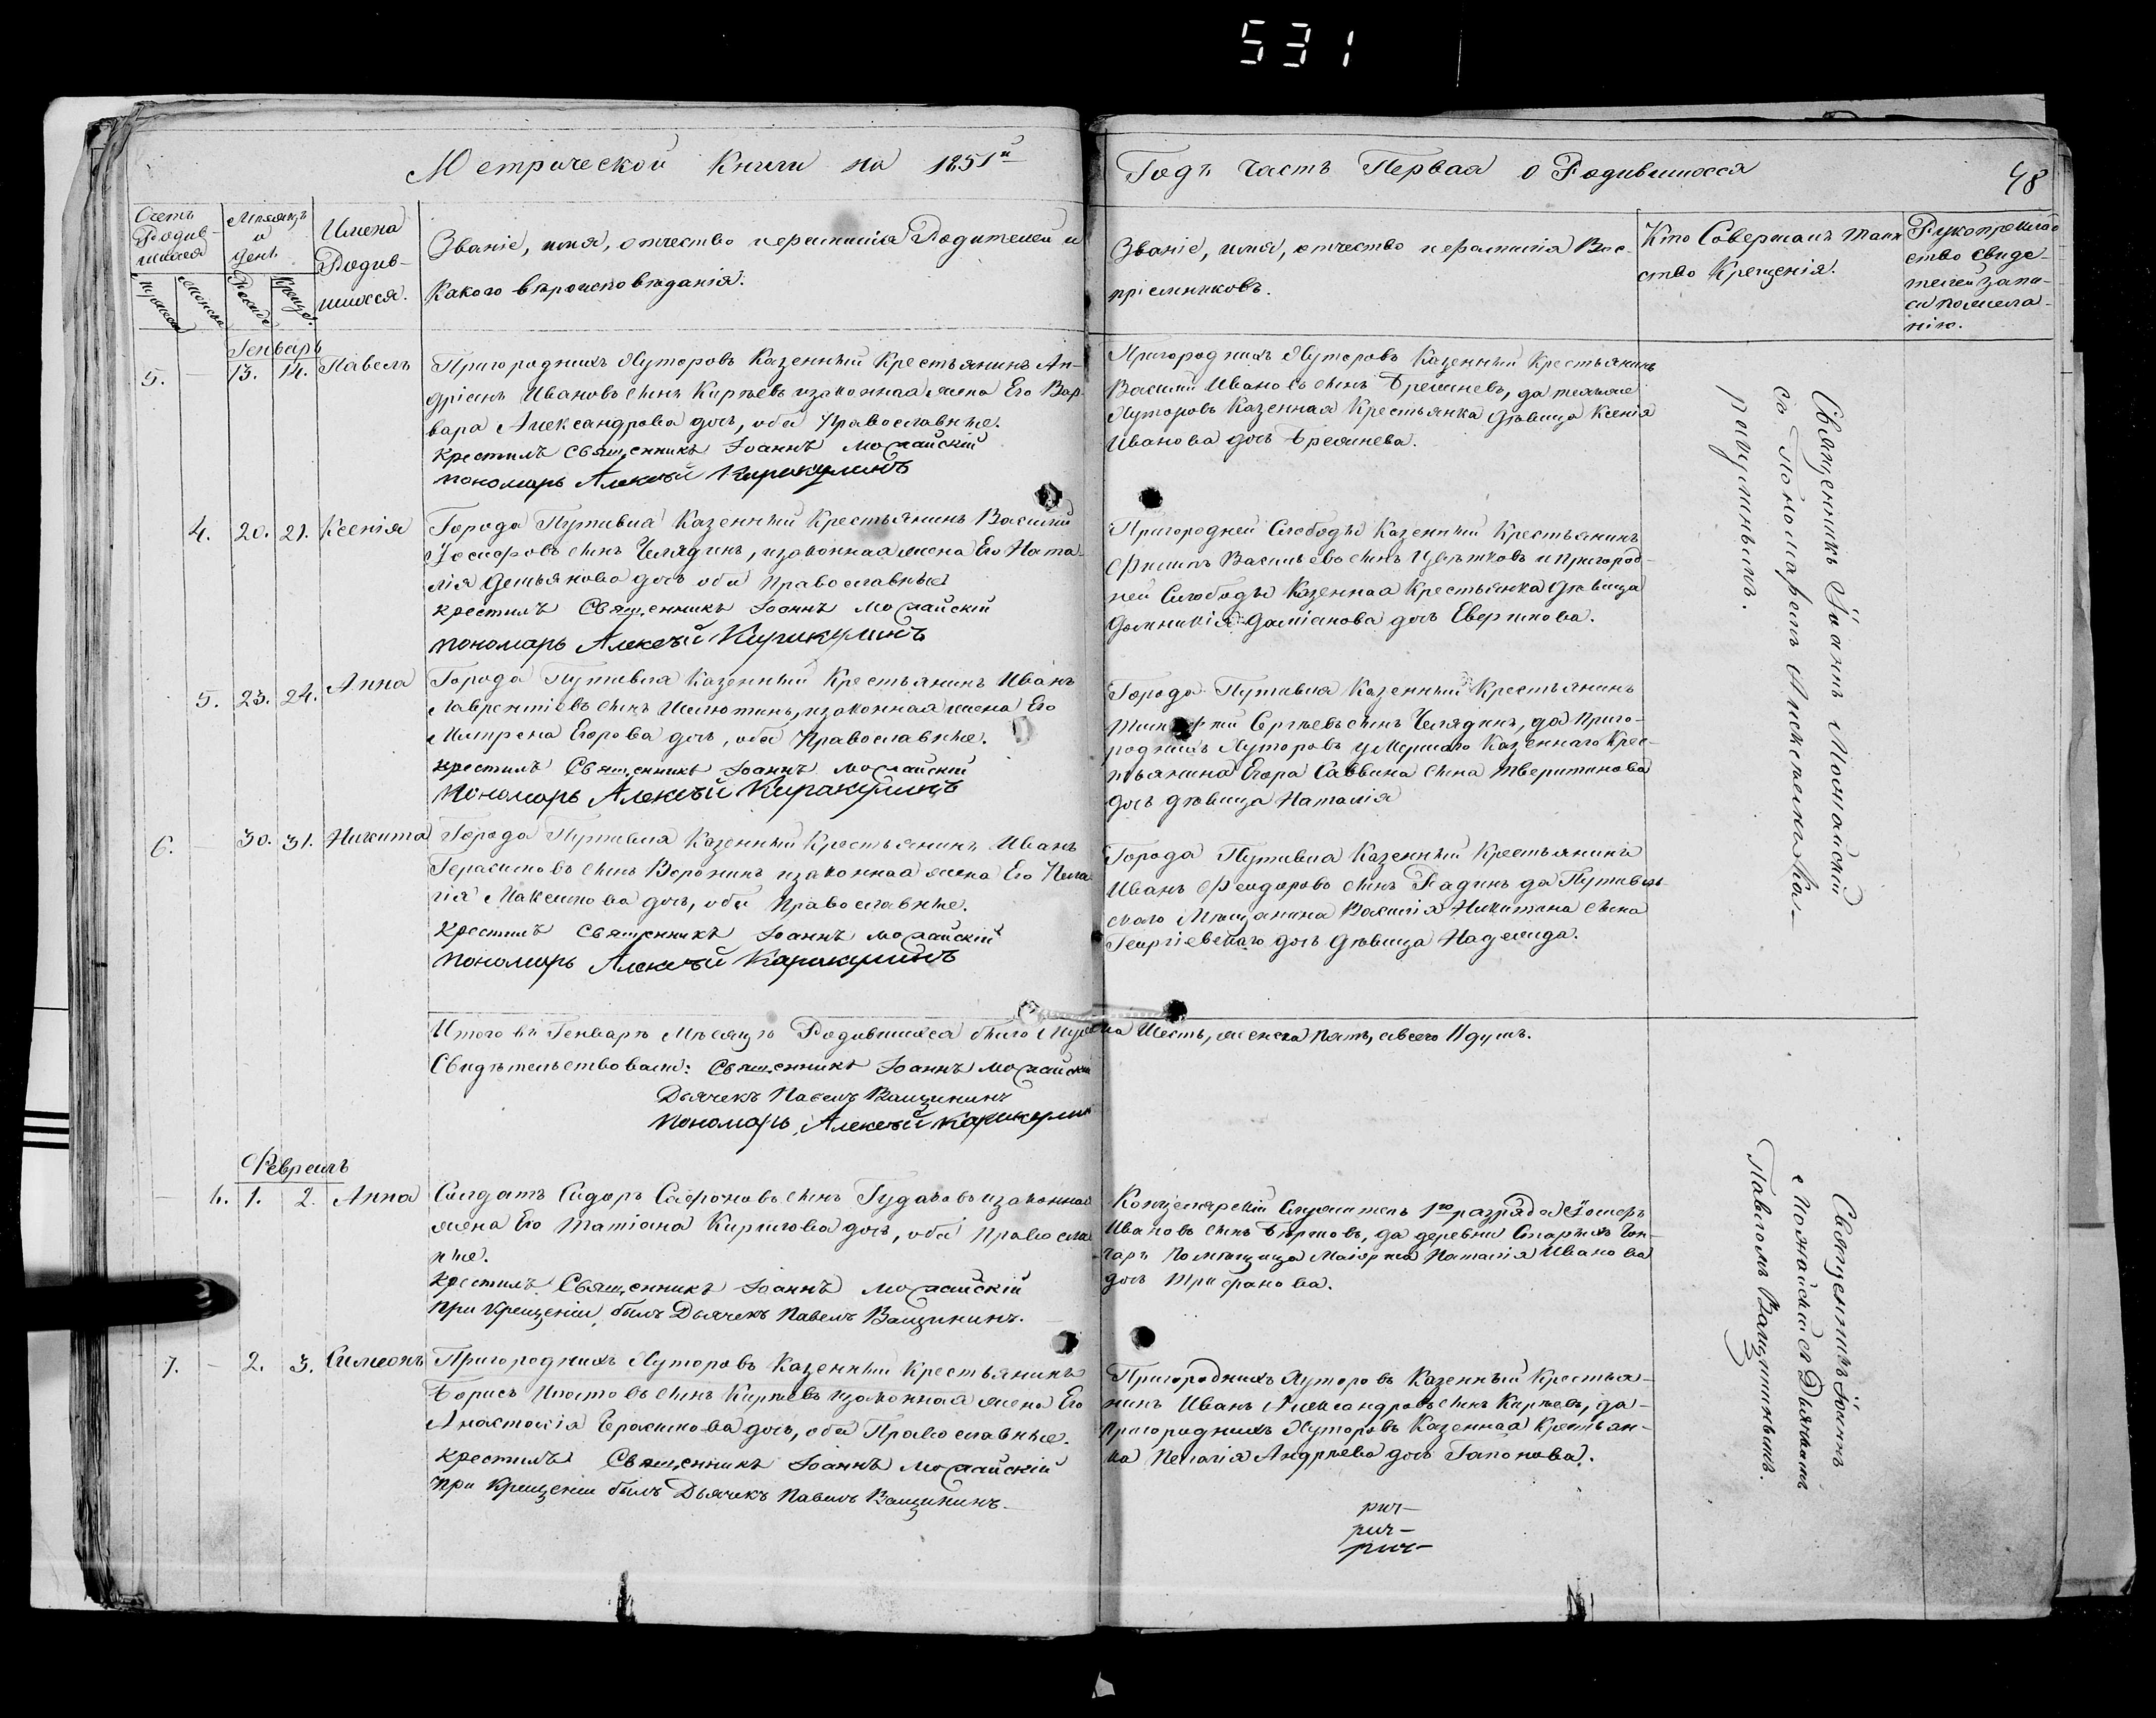 531
Метрической Книги на 1851й
Годъ Часть Первая о Родившихся
48
Счетъ Родив-шихся
Мѣсяцъ и день
Имена Родив-шихся.
Званіе, имя, отчество и фамилія Родителей и
Какого вѣроисповѣданія.
Званіе, имя, отчество и фамилія Вос-
пріемниковъ.
Кто Совершалъ таин
ство Крещенія.
Рукоприклад
ство свиде-
телей запи-
си по жела-
нію.
Генварь
5. — 13. 14. Павелъ
Пригородныхъ Хуторовъ Казенный Крестьянинъ Ан-
дріанъ Ивановъ сынъ Кирѣевъ изаконная жена Его Вар-
вара Александрова дочь, оба Православные.
крестилъ Священникъ Іоаннъ Можайскій
пономарь Алексѣй Каракулинъ
Пригородныхъ Хуторовъ Казенный Крестьянинъ
Василий Ивановъ сынъ, да техъже
Хуторовъ Казенная Крестьянка дѣвица Ксенія
Иванова дочь
Священникъ Іоаннъ Можайскій
съ Пономаремъ Алексѣемъ Ка-
ракулинымъ.
4. 20. 21. Ксенія
Города Путивля Казенный Крестьянинъ Василий
сынъ Челядинъ, изаконная жена Его Ната-
лія Демьянова дочь оба Православные
крестилъ Священникъ Іоаннъ Можайскій
пономарь Алексѣй Каракулинъ
Пригородней Слободы Казенный Крестьянинъ
Филипъ Васильевъ сынъ Цвѣтковъ и Пригород-
ней Слободы Казенная Крестьянка дѣвица
Домникія Даміанова дочь
5. 23. 24. Анна
Города Путивля Казенный Крестьянинъ Иванъ
Лаврентіевъ сынъ, изаконная жена Его
Матрена Егорова дочь, оба Православные.
крестилъ Священникъ Іоаннъ Можайскій
Пономарь Алексѣй Каракулинъ
Города Путивля Казенный Крестьянинъ
Сергѣевъ сынъ Челядинъ, да приго-
роднихъ Хуторовъ умершаго Казеннаго Крес-
тьянина Егора Саввина сына Тверитинова
дочь дѣвица Наталія
6. — 30. 31. Никита
Города Путивля Казенный Крестьянинъ Иванъ
Герасимовъ сынъ Воронинъ изаконная жена Его Пела
гія Максимова дочь, оба Православные.
крестилъ Священникъ Іоаннъ Можайскій
пономарь Алексѣй Каракулинъ
Города Путивля Казенный Крестьянинъ
Иванъ Феодоровъ сынъ да Путивль-
скаго Мещанина Василія Никитина сына
Георгіевскаго дочь дѣвица Надежда.
Итого въ Генварѣ Мѣсяцѣ Родившихся было Мужска Шесть, женска пять, а всего 11 душъ.
Свидѣтельствовали: Священникъ Іоаннъ Можайскій
Дьячекъ Павелъ Ващининъ
пономарь Алексѣй Каракулин
Февраль
6. 1. 2. Анна
Солдатъ Сидоръ Сафоновъ сынъ Гудаковъ изаконная
жена Его Татіана Кирилова дочь, оба Православ
ные.
крестилъ Священникъ Іоаннъ Можайскій
при крещеніи былъ Дьячекъ Павелъ Ващининъ.
Канцелярскій Служитель 1го разряда
Ивановъ сынъ, да деревни Старыхъ Гон-
чаръ Помѣщица Маіорша Наталія Иванова
дочь Трифанова.
Священникъ Іоаннъ
Можайскій съ Дьячкомъ
Павломъ Ващининымъ.
7. — 2. 3. Симеонъ
Пригороднихъ Хуторовъ Казенный Крестьянинъ
Борисъ сынъ Кирѣевъ изаконная жена Его
Анастасія Ерасимова дочь, оба Православные.
крестилъ Священникъ Іоаннъ Можайскій
при крещеніи былъ Дьячекъ Павелъ Ващининъ.
Пригороднихъ Хуторовъ Казенный Крестья-
нинъ Иванъ Александровъ сынъ Кирѣевъ, да-
пригороднихъ Хуторовъ Казенная Крестьян-
ка Пелагія Андрѣева дочь Гапонова.